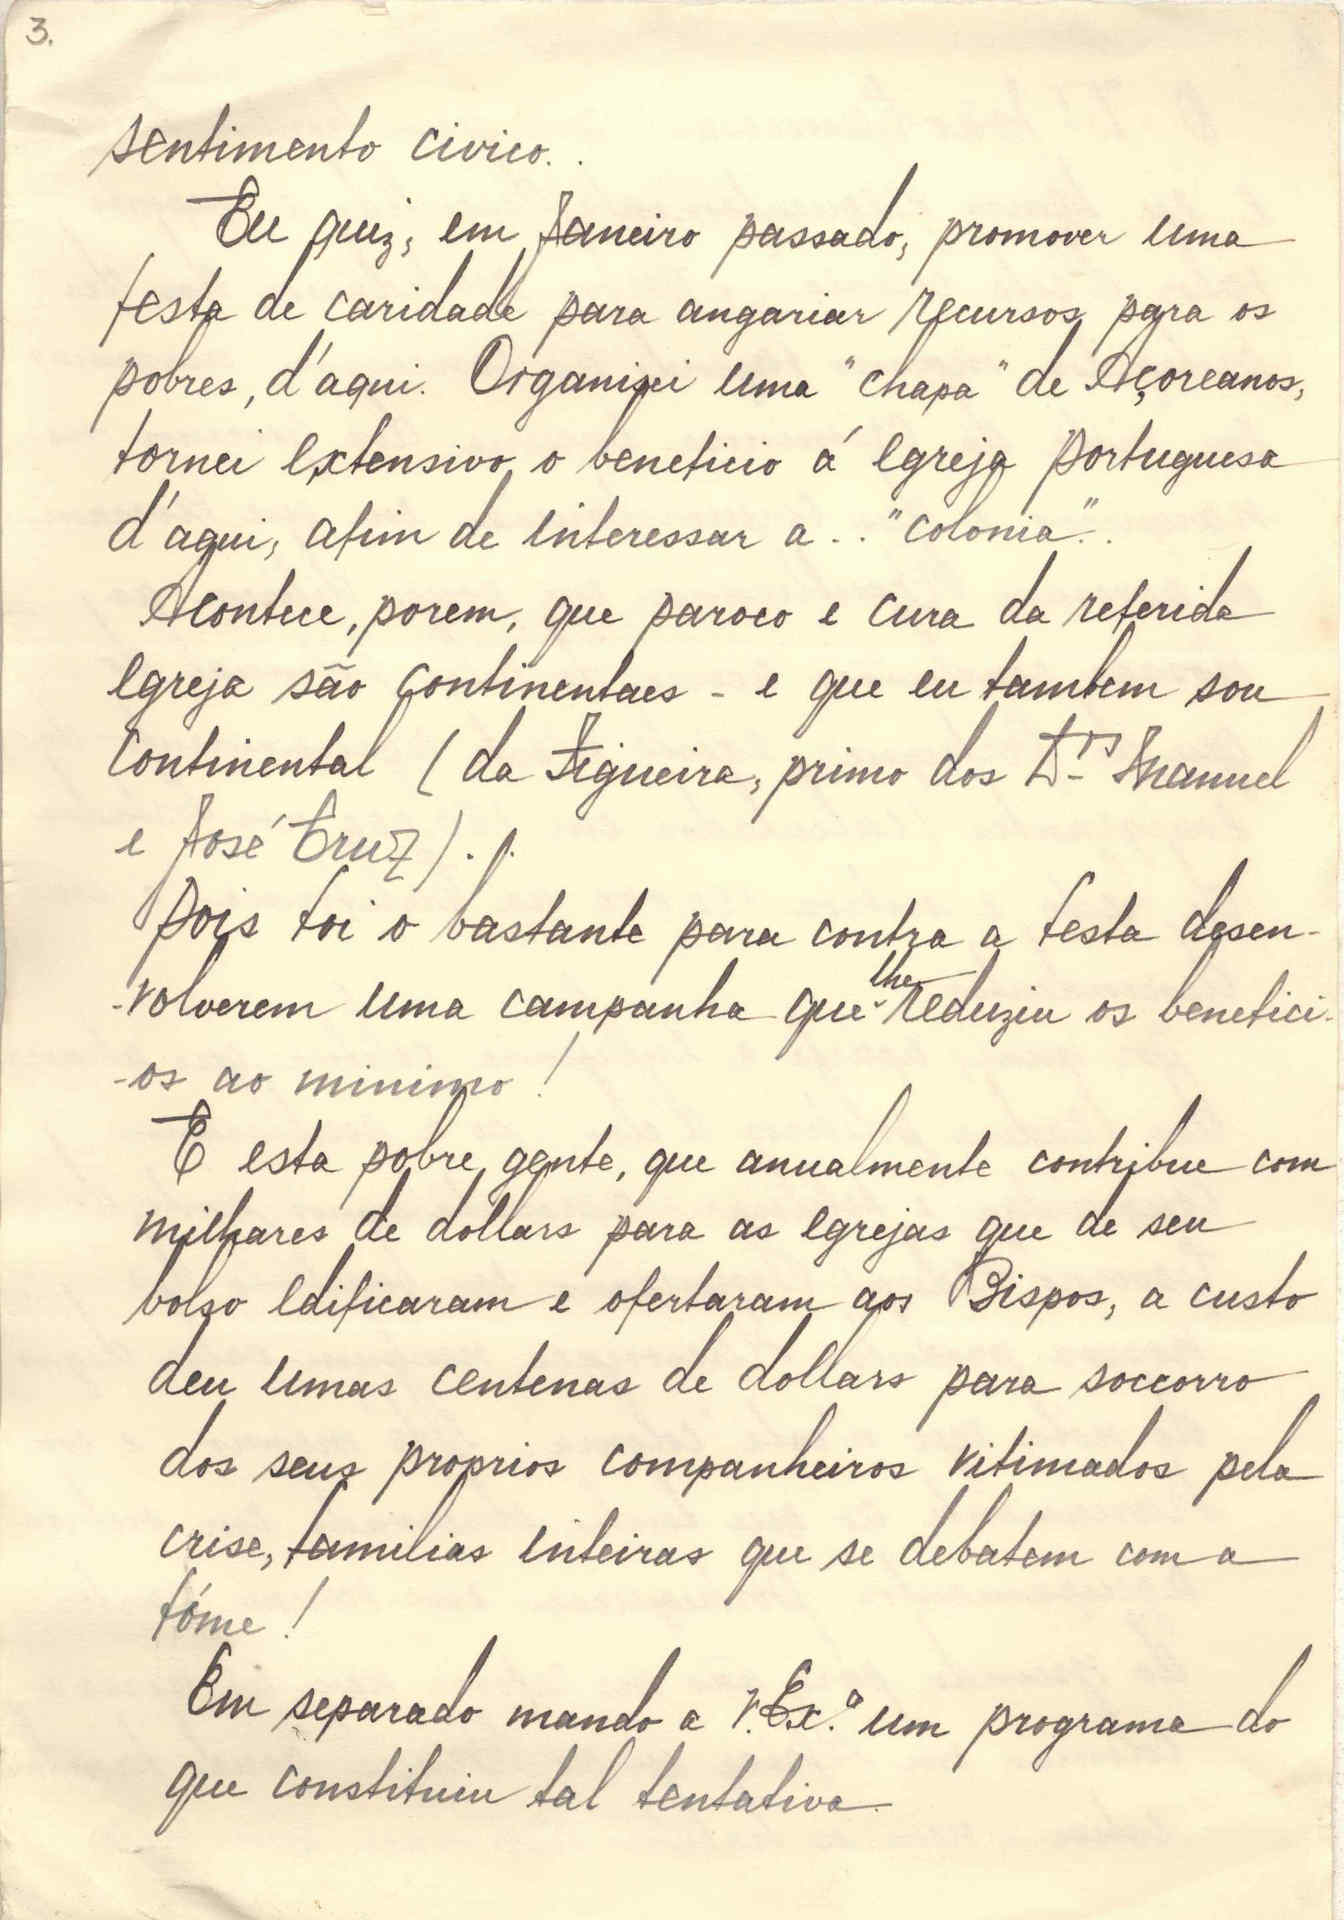 3.
sentimento civico..
Eu quiz, em Janeiro passado, promover uma
festa de caridade para angariar recursos para os
pobres, d'aqui. Organisei uma "chapa" de Açoreanos,
tornei extensivo o beneficio á Egreja portuguesa
d'aqui, afim de interessar a .. "colonia"..
Acontece, porem, que paroco e cura da referida
Egreja são Continentaes - e que eu tambem sou
Continental (da Figueira, primo dos Drs Manuel
e José Cruz)..
Pois foi o bastante para contra a festa desen-
-volverem uma campanha que lhe reduziu os benefici-
-os ao minimo!
E esta pobre gente, que anualmente contribue com
milhares de dollars para as Egrejas que de seu
bolso edificaram e ofertaram aos Bispos, a custo
deu umas centenas de dollars para soccorro
dos seus proprios companheiros vitimados pela
crise, familias inteiras que se debatem com a
fóme!
Em separado mando a V. Ex.ª um programa do
que constituiu tal tentativa